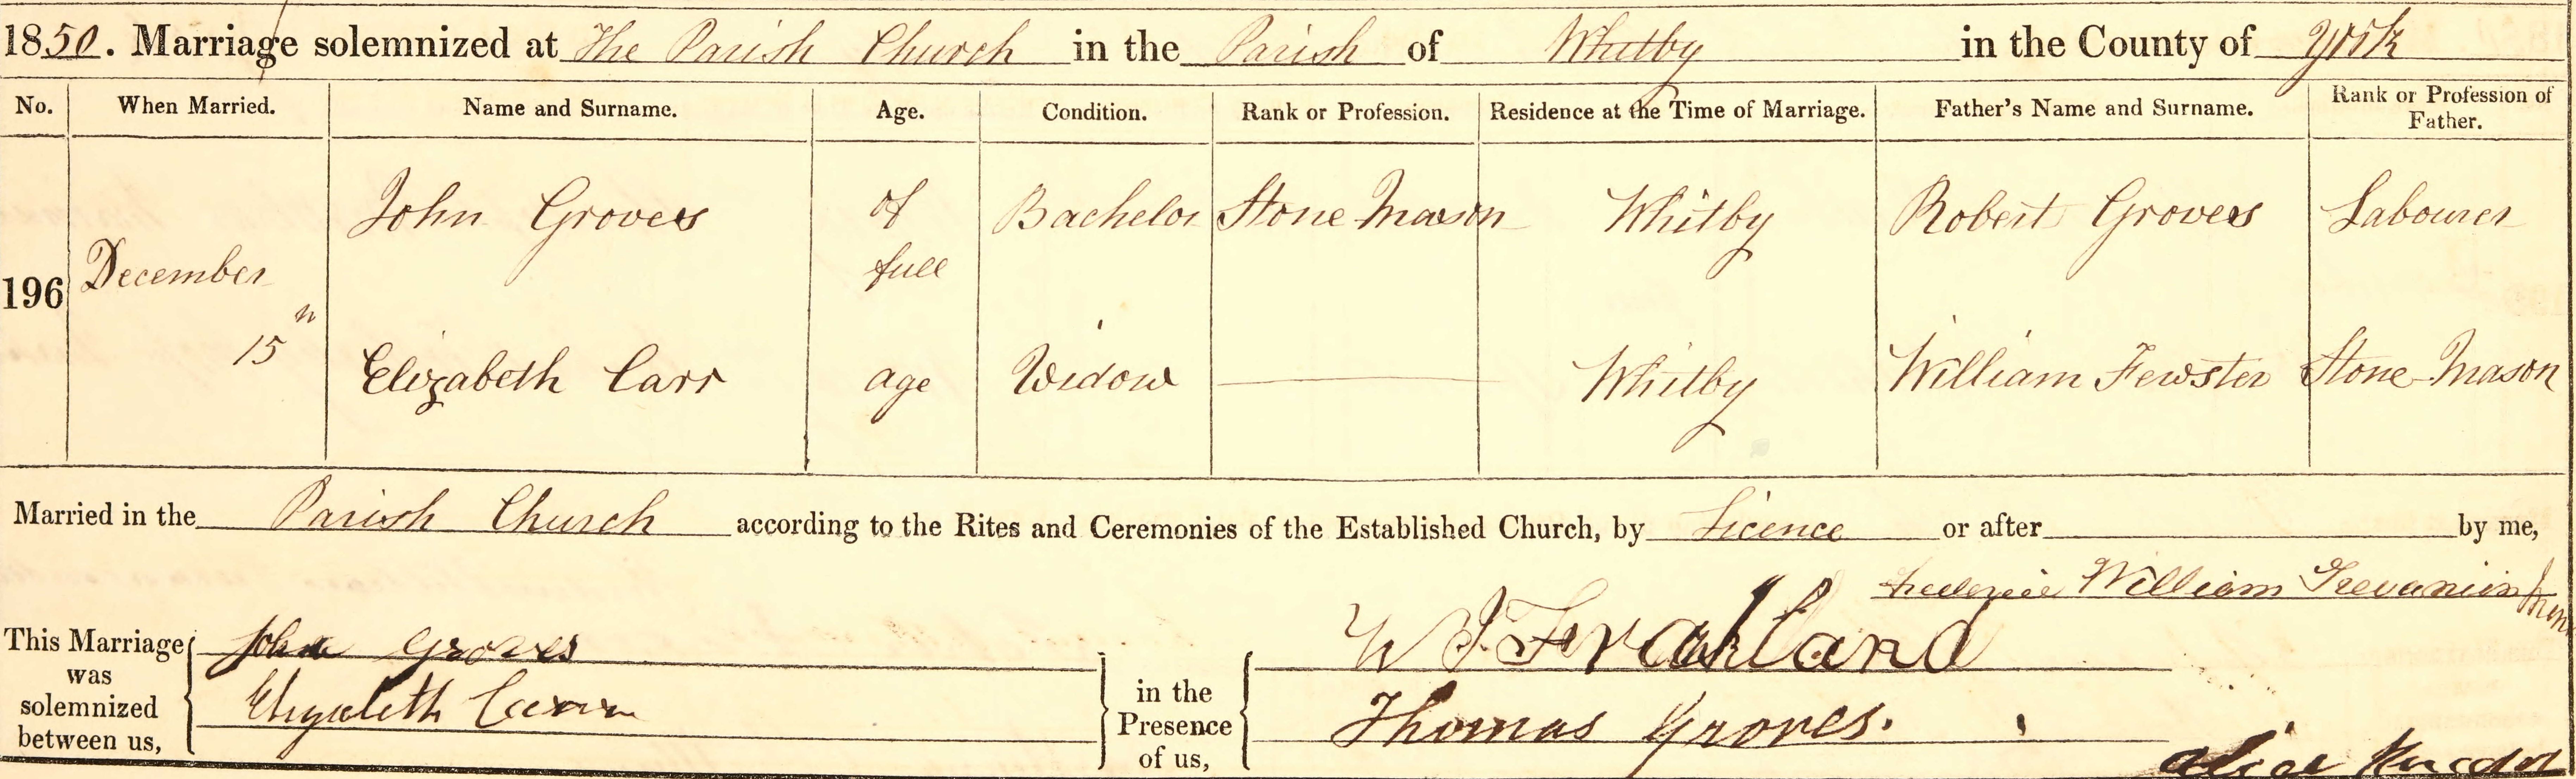 1850. Marriage solemnized at The Parish Church in the Parish of Whitby in the County of York
No. When Married. Name and Surname. Age. Condition. Rank or Profession. Residence at the Time of Marriage. Father's Name and Surname. Rank or Profession of Father.
John Groves of Bachelor Stone Mason Whitby Robert Groves Labourer
full
196 December
15th
Elizabeth Carr age Widow Whitby William Fewster Stone Mason
Married in the Parish Church according to the Rites and Ceremonies of the Established Church, by Licence or after by me,
Frederic William Trevanion
This Marriage was solemnized between us,
John Groves
Elizabeth Carr
in the Presence of us,
Frankland
Thomas Groves.
Alice